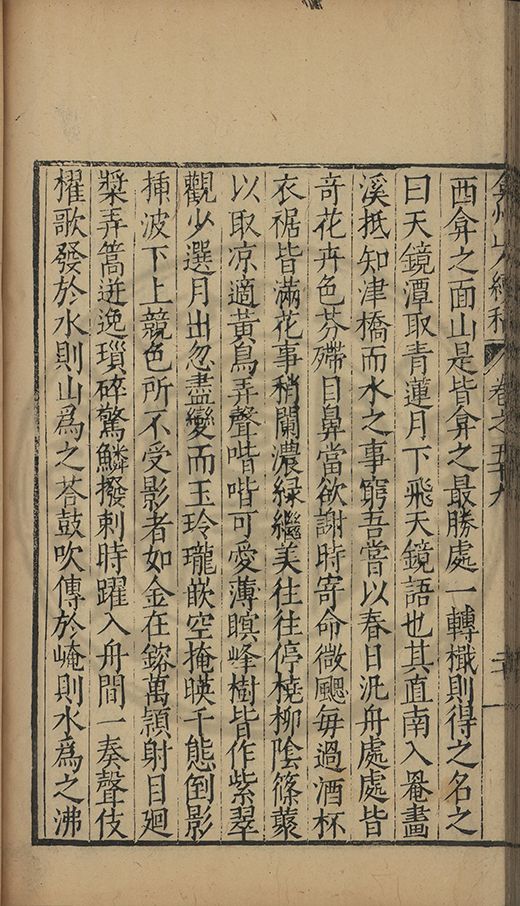 弇州山人續稿 卷之五十九
西弇之面山是皆弇之最勝處一轉檝則得之名之
曰天鏡潭取青蓮月下飛天鏡語也其直南入罨畫
溪抵知津橋而水之事窮吾嘗以春日汎舟處處皆
奇花卉色芬殢目鼻當欲謝時寄命微颸每過酒杯
衣裾皆滿花事稍闌濃緑繼美往往停橈柳陰篠藂
以取凉適黃鳥弄聲喈喈可愛薄暝峰樹皆作紫翠
觀少選月出忽盡變而玉玲瓏嵌空掩暎千態倒影
插波下上競色所不受影者如金在鎔萬頴射目廻
槳弄篙迸逸瑣碎驚鱗撥剌時躍入舟間一奏聲伎
櫂歌發於水則山爲之荅鼓吹傳於崦則水爲之沸